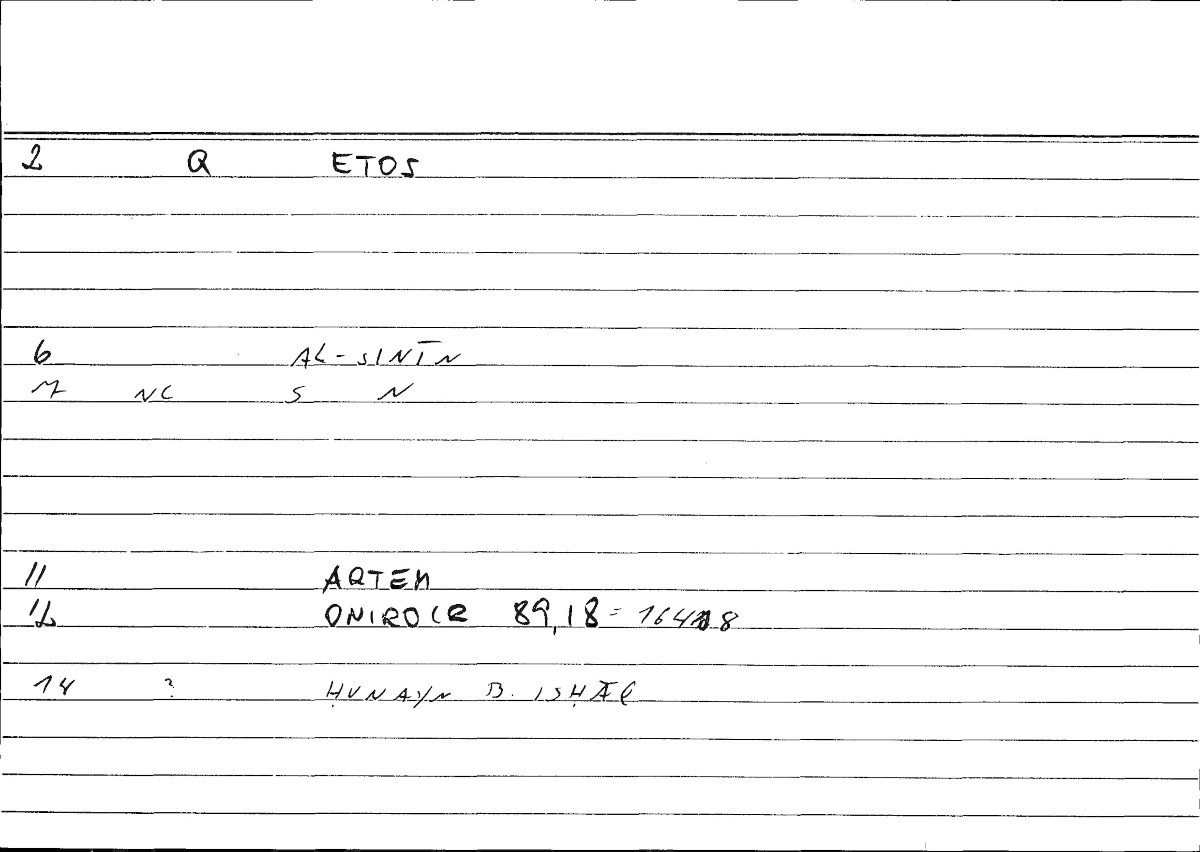 2 Q ETOS
6 AL-SINĪN
M NC S N
11 ARTEM
12 ONIROCR 89,18 =
14 ? ḤUNAYN B. ISḤĀQ